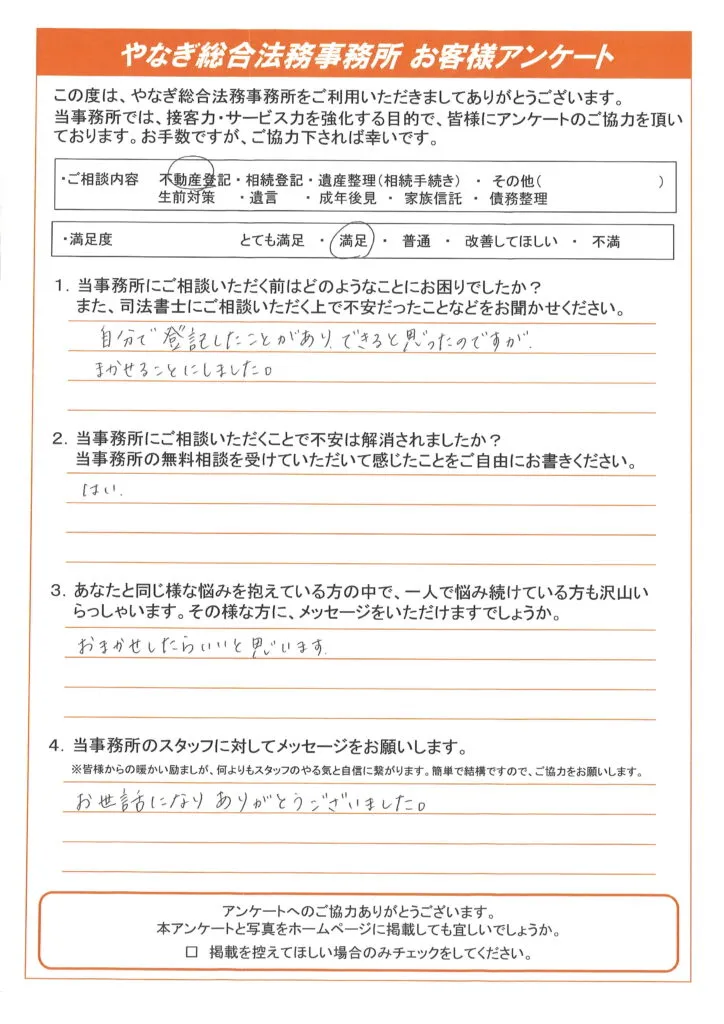 やなぎ総合法務事務所 お客様アンケート
この度は、やなぎ総合法務事務所をご利用いただきましてありがとうございます。
当事務所では、接客力・サービス力を強化する目的で、皆様にアンケートのご協力を頂い
ております。お手数ですが、ご協力下されば幸いです。
・ご相談内容 不動産登記・相続登記・遺産整理(相続手続き) ・ その他( )
生前対策 ・遺言 ・ 成年後見 ・ 家族信託 ・ 債務整理
・満足度 とても満足 ・ 満足 ・ 普通 ・ 改善してほしい ・ 不満
1. 当事務所にご相談いただく前はどのようなことにお困りでしたか?
また、司法書士にご相談いただく上で不安だったことなどをお聞かせください。
自分で登記したことがあり、できると思ったのですが、
まかせることにしました。
2. 当事務所にご相談いただくことで不安は解消されましたか?
当事務所の無料相談を受けていただいて感じたことをご自由にお書きください。
はい.
3. あなたと同じ様な悩みを抱えている方の中で、一人で悩み続けている方も沢山い
らっしゃいます。その様な方に、メッセージをいただけますでしょうか。
おまかせしたらいいと思います.
4. 当事務所のスタッフに対してメッセージをお願いします。
※皆様からの暖かい励ましが、何よりもスタッフのやる気と自信に繋がります。簡単で結構ですので、ご協力をお願いします。
お世話になり ありがとうございました。
アンケートへのご協力ありがとうございます。
本アンケートと写真をホームページに掲載しても宜しいでしょうか。
□ 掲載を控えてほしい場合のみチェックをしてください。